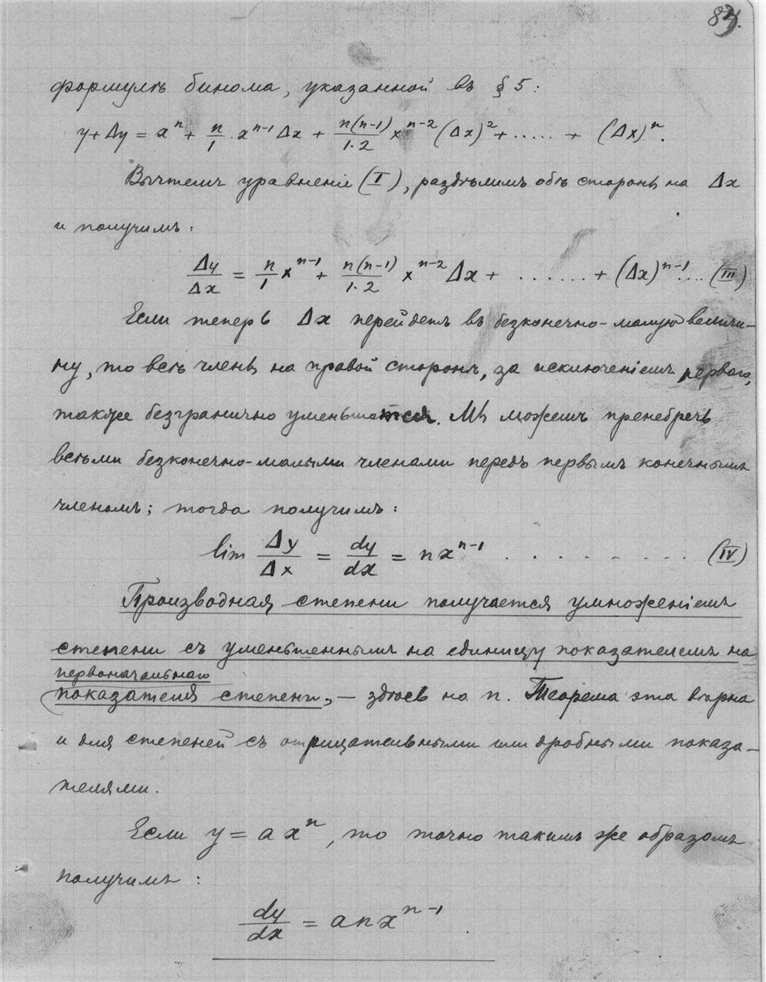 84.
формулѣ бинома, указанной въ § 5:
y+Δy = xⁿ + n/1 · xⁿ⁻¹ Δx + n(n-1)/1·2 xⁿ⁻² (Δx)² + ..... + (Δx)ⁿ.
Вычтемъ уравненіе (I), раздѣлимъ обѣ стороны на Δx
и получимъ:
Δy/Δx = n/1 xⁿ⁻¹ + n(n-1)/1·2 xⁿ⁻² Δx + ...... + (Δx)ⁿ⁻¹ ... (III)
Если теперь Δx перейдетъ въ безконечно-малую величи-
ну, то всѣ члены на правой сторонѣ, за исключеніемъ перваго,
также безгранично уменьшатся. Мы можемъ пренебречь
всѣми безконечно-малыми членами передъ первымъ конечнымъ
членомъ; тогда получимъ:
lim Δy/Δx = dy/dx = nxⁿ⁻¹ . . . . . . . . (IV)
Производная степени получается умноженіемъ
степени съ уменьшеннымъ на единицу показателемъ на
первоначальнаго
показателя степени, — здѣсь на n. Теорема эта вѣрна
и для степеней съ отрицательными или дробными показа-
телями.
Если y = axⁿ, то точно такимъ же образомъ
получимъ:
dy/dx = anxⁿ⁻¹.